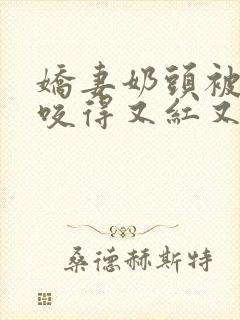 嬌妻奶頭被
咬得又紅又
桑德赫斯特